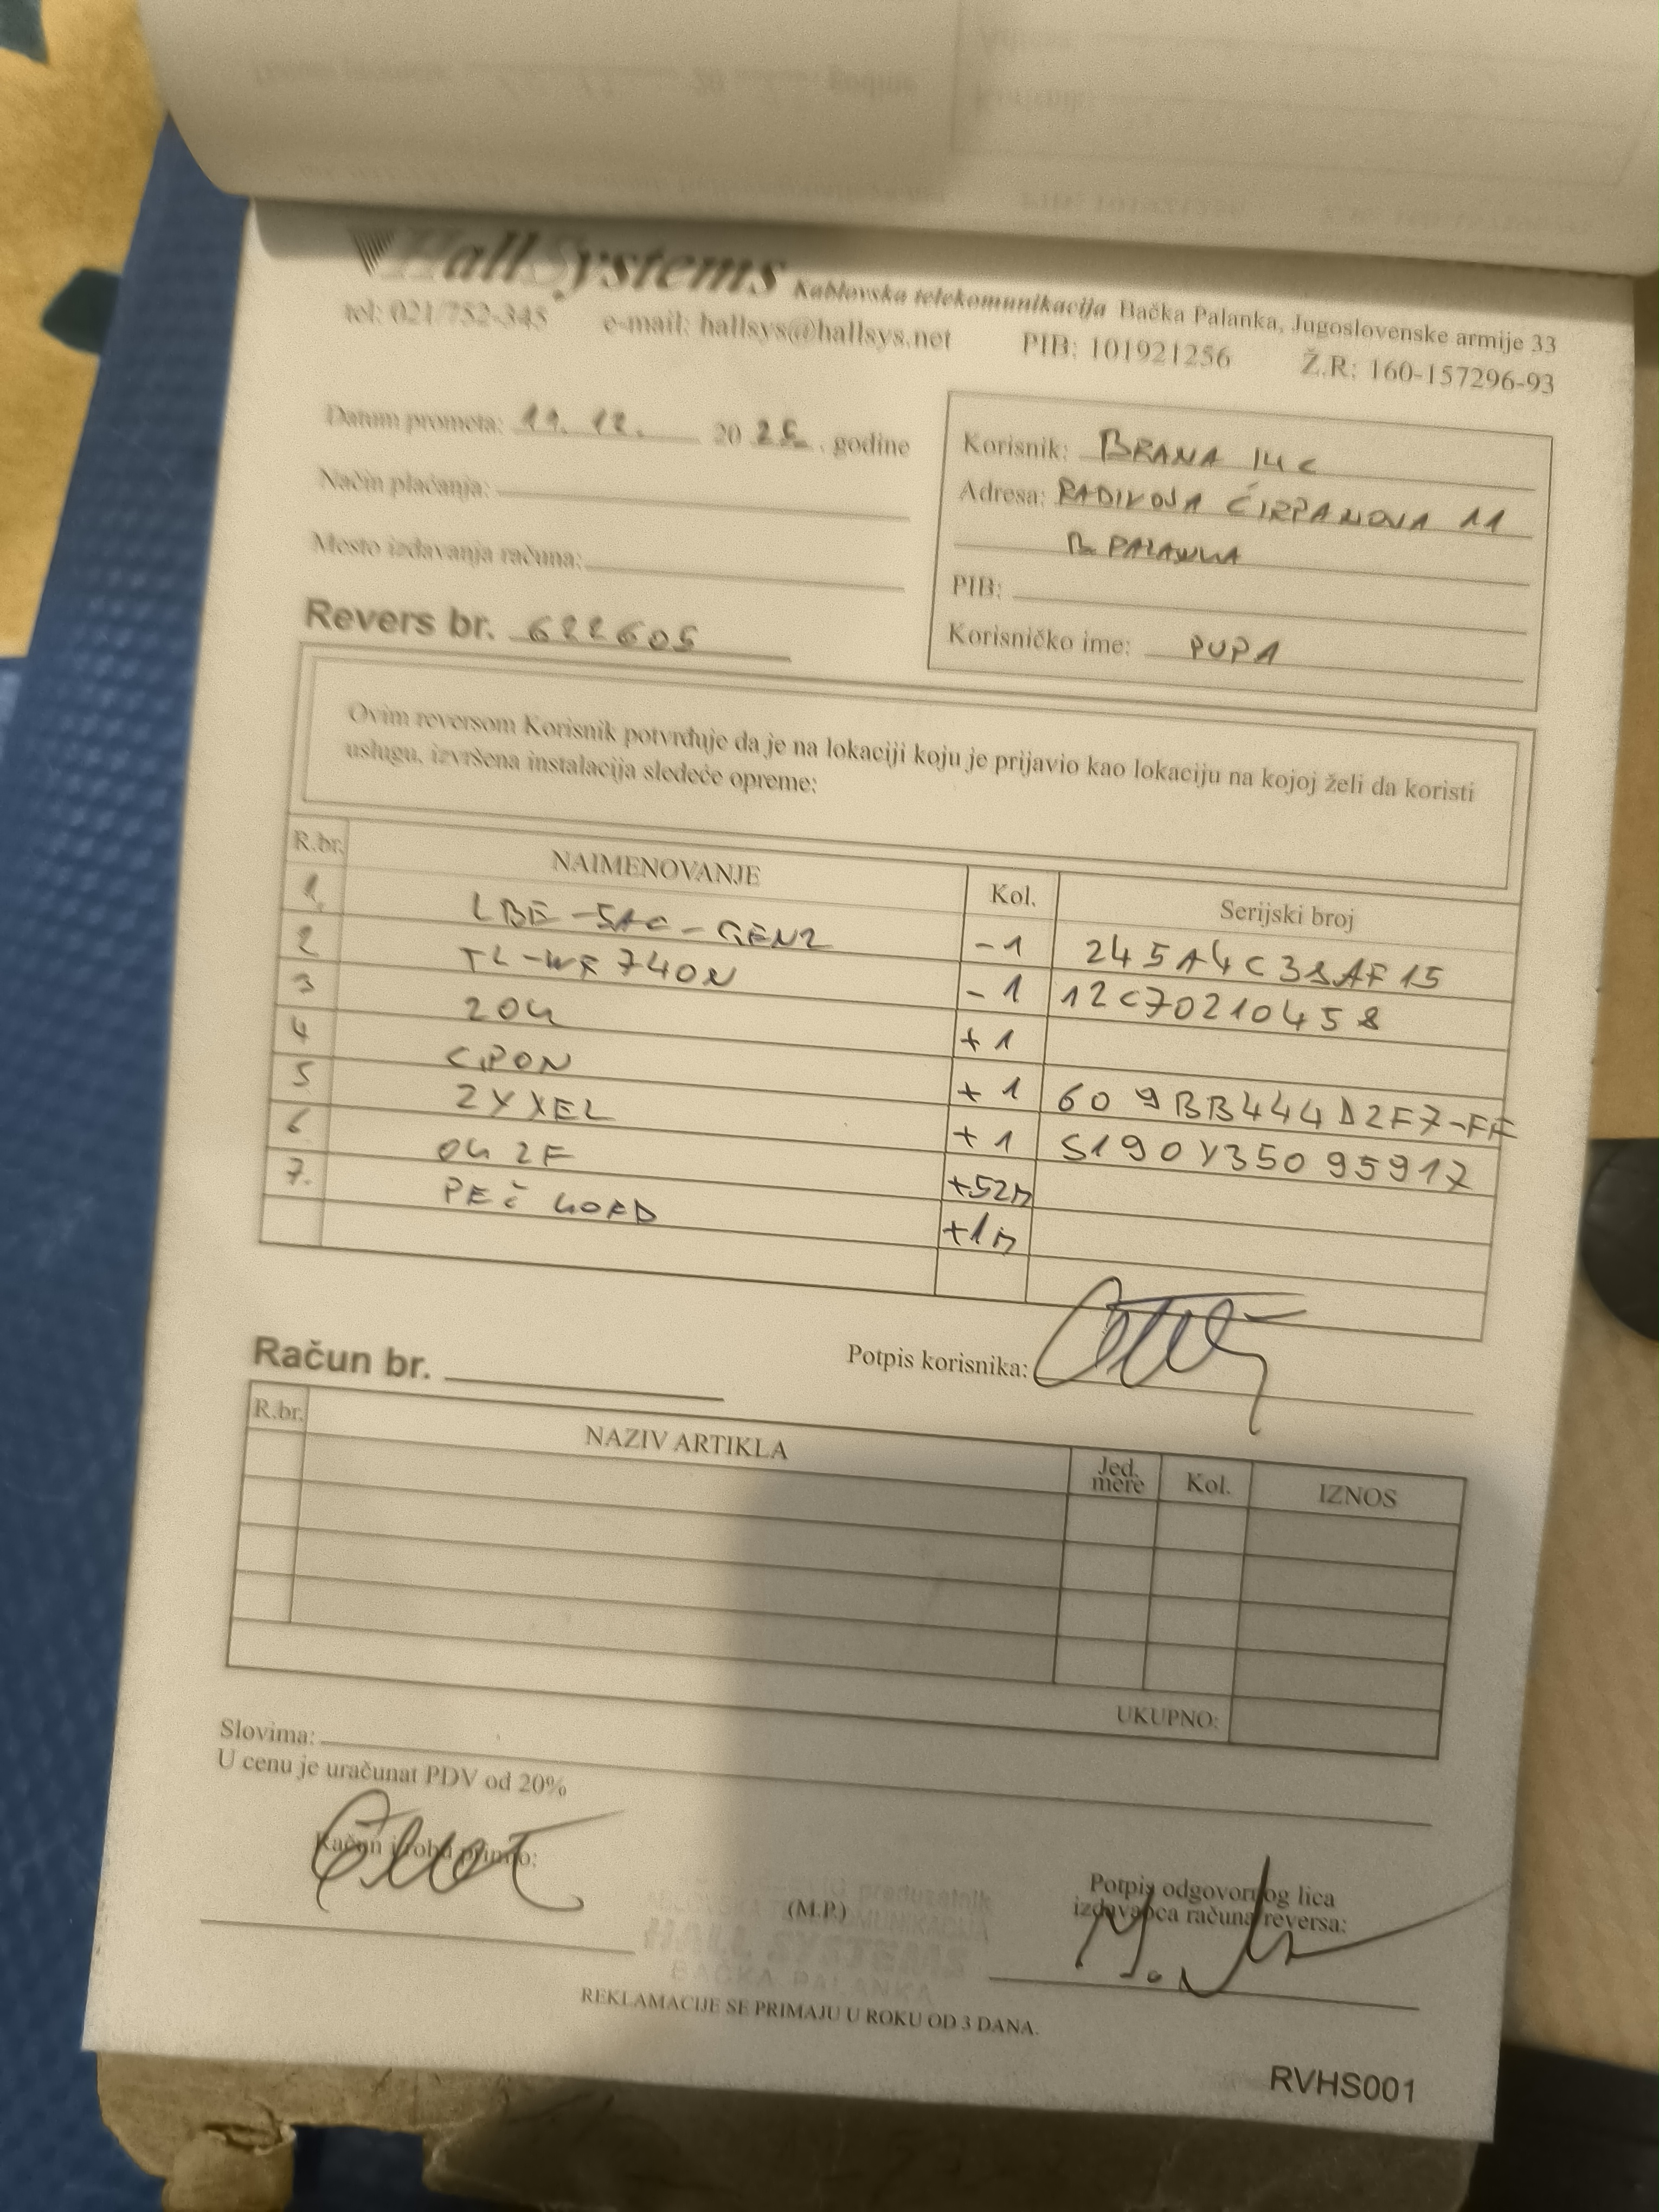 HallSystems Kablovska telekomunikacija Bačka Palanka, Jugoslovenske armije 33
tel: 021/752-345 e-mail: hallsys@hallsys.net PIB: 101921256 Ž.R: 160-157296-93
Datum prometa: 11. 12. 2025. godine
Način plaćanja:
Mesto izdavanja računa:
Korisnik: BRANA
Adresa: RADIVOJA ĆIRPANOVA 11
B. PALANKA
PIB:
Korisničko ime: PUPA
Revers br. 622605
Ovim reversom Korisnik potvrđuje da je na lokaciji koju je prijavio kao lokaciju na kojoj želi da koristi
uslugu, izvršena instalacija sledeće opreme:
R.br. NAIMENOVANJE Kol. Serijski broj
1. LBE-5AC-GEN2 -1 245A4C38AF15
2 TL-WR740N -1 12C70210458
3 ZOK +1
4 GPON +1 609BB444D2F7-FF
5 ZYXEL +1 S190Y35095917
6 OK 2F +52m
7. PEČ KORD +1m
Račun br.
Potpis korisnika:
R.br. NAZIV ARTIKLA Jed. mere Kol. IZNOS
UKUPNO:
Slovima:
U cenu je uračunat PDV od 20%
Račun i robu primio:
(M.P.)
Potpis odgovornog lica
izdavaoca računa/reversa:
preduzetnik
HALL SYSTEMS
BAČKA PALANKA
REKLAMACIJE SE PRIMAJU U ROKU OD 3 DANA.
RVHS001